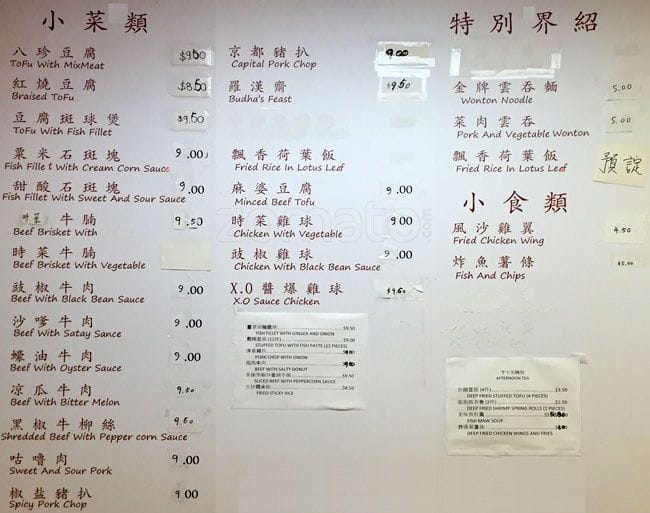 小菜類
八珍豆腐 $9.50
ToFu With MixMeat
紅燒豆腐 $8.50
Braised ToFu
豆腐斑球煲 $9.50
ToFu With Fish Fillet
粟米石斑塊 9.00
Fish Fillet With Cream Corn Sauce
甜酸石斑塊 9.00
Fish Fillet With Sweet And Sour Sauce
牛腩 9.50
Beef Brisket With
時菜牛腩
Beef Brisket With Vegetable
豉椒牛肉 9.00
Beef With Black Bean Sauce
沙嗲牛肉 9.00
Beef With Satay Sance
蠔油牛肉 9.00
Beef With Oyster Sauce
凉瓜牛肉 9.50
Beef With Bitter Melon
黑椒牛柳絲 9.50
Shredded Beef With Pepper corn Sauce
咕嚕肉 9.00
Sweet And Sour Pork
椒盐豬扒 9.00
Spicy Pork Chop
京都豬扒 9.00
Capital Pork Chop
羅漢齋 $9.50
Budha's Feast
飄香荷葉飯
Fried Rice In Lotus Leef
麻婆豆腐 9.00
Minced Beef Tofu
時菜雞球 9.00
Chicken With Vegetable
豉椒雞球 9.00
Chicken With Black Bean Sauce
X.O 醬爆雞球 $9.50
X.O Sauce Chicken
$9.50
FISH FILLET WITH GINGER AND ONION
(12件) $9.00
STUFFED TOFU WITH FISH PASTE (12 PIECES)
PORK CHOP WITH ONION
BEEF WITH SALTY DONUT
$9.50
SLICED BEEF WITH PEPPERCORN SAUCE
$8.50
FRIED STICKY RICE
特別界紹
金牌雲吞麵 5.00
Wonton Noodle
菜肉雲吞 5.00
Pork And Vegetable Wonton
飄香荷葉飯 預定
Fried Rice In Lotus Leef
小食類
風沙雞翼 4.50
Fried Chicken Wing
炸魚薯條 $5.00
Fish And Chips
AFTERNOON TEA
(4件) $3.50
DEEP FRIED STUFFED TOFU (4 PIECES)
(2件) $2.50
DEEP FRIED SHRIMP SPRING ROLLS (2 PIECES)
FISH MAW SOUP
DEEP FRIED CHICKEN WINGS AND FRIES
zomato.com